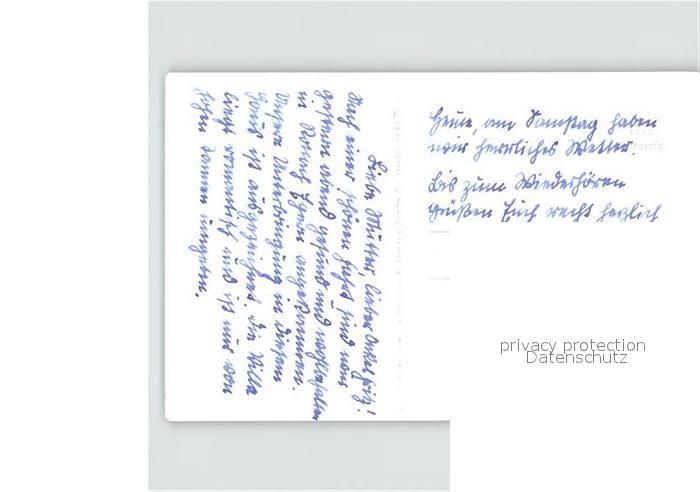 Liebe Mutter, lieber Onkel Fritz!
Nach einer schönen Fahrt sind wir
gestern abend gesund und wohlbehalten
in angekommen.
Unsere Unterbringung in diesem
Haus ist ausgezeichnet. Die Villa
liegt romantisch und ist nur von
hohen Tannen umgeben.
Heute, am Samstag haben
wir herrliches Wetter.
Bis zum Wiederhören
grüßen Euch recht herzlich
privacy protection
Datenschutz